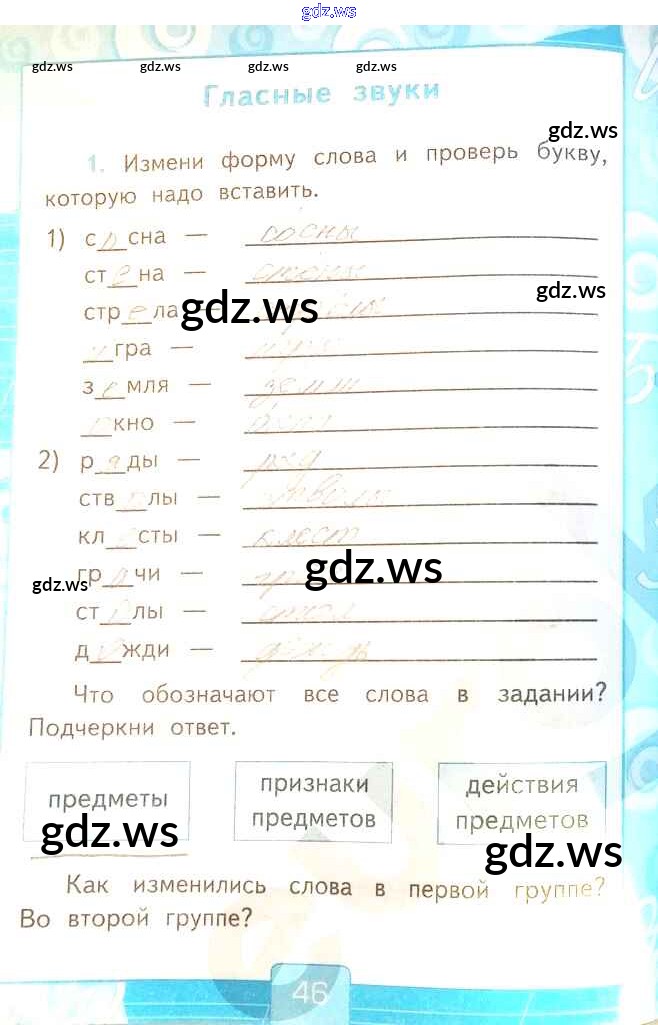 gdz.ws
gdz.ws gdz.ws gdz.ws gdz.ws
Гласные звуки
gdz.ws
1. Измени форму слова и проверь букву,
которую надо вставить.
1) с о сна — сосны
ст е на —
gdz.ws
стр е ла
gdz.ws
и гра —
з е мля — земли
о кно —
2) р я ды — ряд
ств о лы —
кл е сты — клест
gdz.ws
гр а чи —
gdz.ws
ст о лы — стол
д о жди — дождь
Что обозначают все слова в задании?
Подчеркни ответ.
предметы
признаки предметов
действия предметов
gdz.ws
gdz.ws
Как изменились слова в первой группе?
Во второй группе?
46